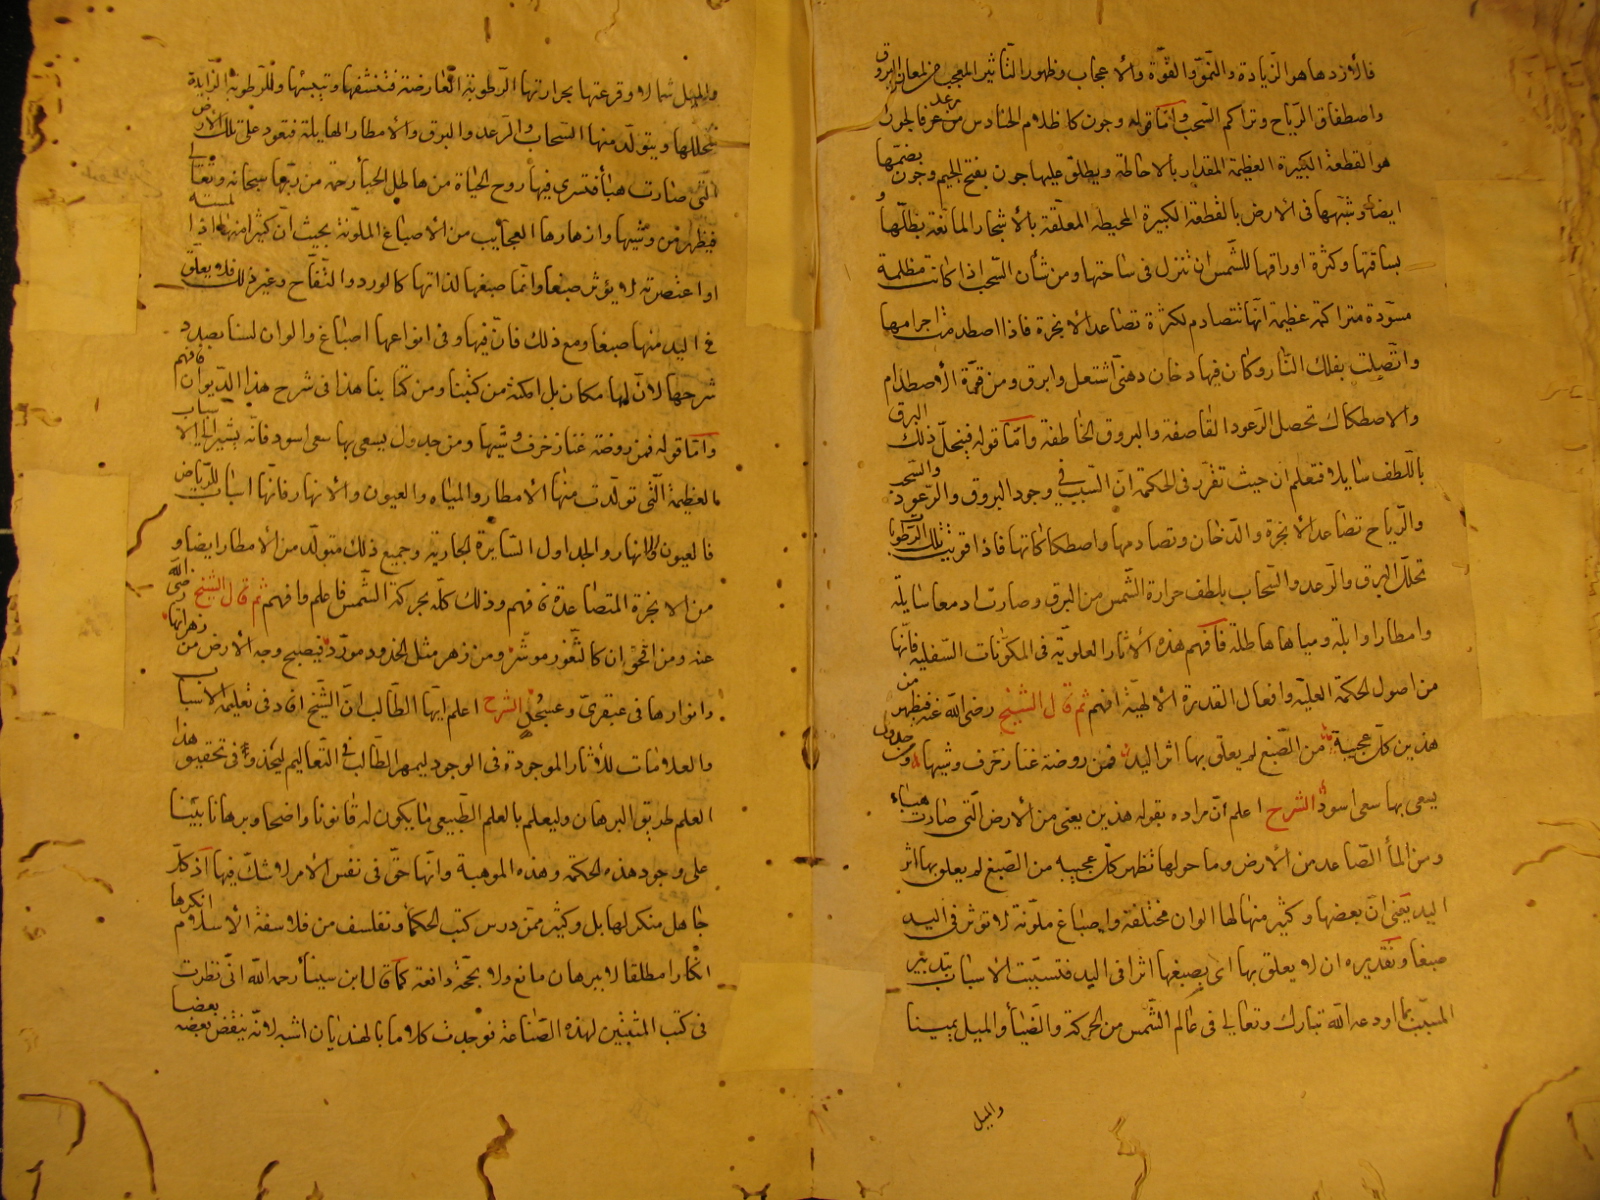 فالازدها هو الزيادة والنمو والقوة والاعجاب وظهور التأثير المعجب من لمعان البروق
واصطفاق الرياح وتراكم السحب واما قوله وجون كاظلام الحنادس من رعد عرفا لجون
هو القطعة الكبيرة العظيمة المقدار بالاحاطة ويطلق عليها جون بفتح الجيم وجون بضمها
ايضا وشبهها في الارض بالقطعة الكبيرة المحيطة المعلقة بالاشجار المانعة بظلها و
بساقتها وكثرة اوراقها للشمس ان تنزل في ساحتها ومن شأن السحب اذا كانت مظلمة
مسودة متراكمة عظيمة انها تتصادم لكثرة تصاعد الابخرة فاذا اصطدمت اجرامها
واتصلت بفلك النار وكان فيها دخان دهني اشتعل وابرق ومن قوة الاصطدام
والاصطكاك تحصل الرعود القاصفة والبروق الخاطفة واما قوله فينحل ذلك البرق
باللطف سايلا فتعلم ان حيث تقرر في الحكمة ان السبب في وجود البروق والرعود والسحب
والرياح تصاعد الابخرة والدخان وتصادمها واصطكاكاتها فاذا قويت تلك الرطوبات
تحلل البرق والرعد والسحاب بلطف حرارة الشمس من البرق وصارت ادمعا سايلة
وامطارا وابلة ومياها هاطلة فافهم هذه الاثار العلوية في المكونات السفلية فانها
من اصول الحكمة العلية وافعال القدرة الالهية افهم ثم قال الشيخ رضي الله عنه فيظهر من
هذين كل عجيبة من الصبغ لم يعلق بها اثر اليد فمن روضة غنا زخرف وشيها ومن جدول
يسعى بها سعي اسود الشرح اعلم ان مراده بقوله هذين يعني من الارض التي صارت هباء
ومن الماء الصاعد من الارض وما حولها تظهر كل عجيبه من الصبغ لم يعلق بها اثر
اليد يعني ان بعضها وكثير منها لها الوان مختلفة واصباغ ملونة لا تؤثر في اليد
صبغا وتقديره ان لا يعلق بها اي بصبغها اثرا في اليد فتسببت الاسباب بتدبير
المسبب بما اودعه الله تبارك وتعالى في عالم الشمس من الحركة والضيأ والميل يمينا
والميل
والميل شمالا وقرعتها بحرارتها الرطوبة العارضة فتنشفها وتيبسها وللرطوبة الزايدة
تحللها ويتولد منها السحاب والرعد والبرق والامطار الهايلة فتعود على تلك الارض
التي صارت هبأ فتسري فيها روح الحياة من هاطل الحيا رحمة من ربها سبحانه وتعالى
فيظهر من وشيها وازهارها العجايب من الاصباغ الملونة بحيث ان كثيرا منها اذا لمسته
او اعتصرته لا يؤثر صبغا وانما صبغها لذاتها كالورد والتفاح وغير ذلك فلا يعلق
في اليد منها صبغا ومع ذلك فان فيها وفي انواعها اصباغ والوان لسنا بصدد
شرحها لان لها مكان بل امكنة من كتبنا ومن كتابنا هذا في شرح هذا الديوان فافهم
واما قوله فمن روضة غنا زخرف وشيها ومن جدول يسعى بها سعي اسود فانه يشير الى الاسباب
العظيمة التي تولدت منها الامطار والمياه والعيون والانهار فانها اسباب للرياض
فالعيون والانهار والجداول السايرة الجارية وجميع ذلك متولد من الامطار ايضا و
من الابخرة المتصاعدة فافهم وذلك كله بحركة الشمس فاعلم وافهم ثم قال الشيخ رضي الله
عنه ومن اقحوان كالثغور موشر ومن زهر مثل الخدود مورد فيصبح وجه الارض من زهراتها
وانوارها في عبقري وعسجد الشرح اعلم ايها الطالب ان الشيخ افاد في تعليمه الاسباب
والعلامات للاثار الموجودة في الوجود ليمهر الطالب في التعاليم ليحذو في تحقيق هذا
العلم طريق البرهان وليعلم بالعلم الطبيعي ما يكون له قانونا واضحا وبرهانا بينا
على وجود هذه الحكمة وهذه الموهبة وانها حق في نفس الامر لا شك فيها اذ كل
جاهل منكر لها بل وكثير ممن درس كتب الحكمأ وتفلسف من فلاسفة الاسلام انكرها
انكارا مطلقا لا ببرهان مانع ولا بحجة دافعة كما قال ابن سينا رحمه الله اني نظرت
في كتب المثبتين لهذه الصناعة فوجدت كلاما بالهذيان اشبه لانه ينقض بعضه بعضا